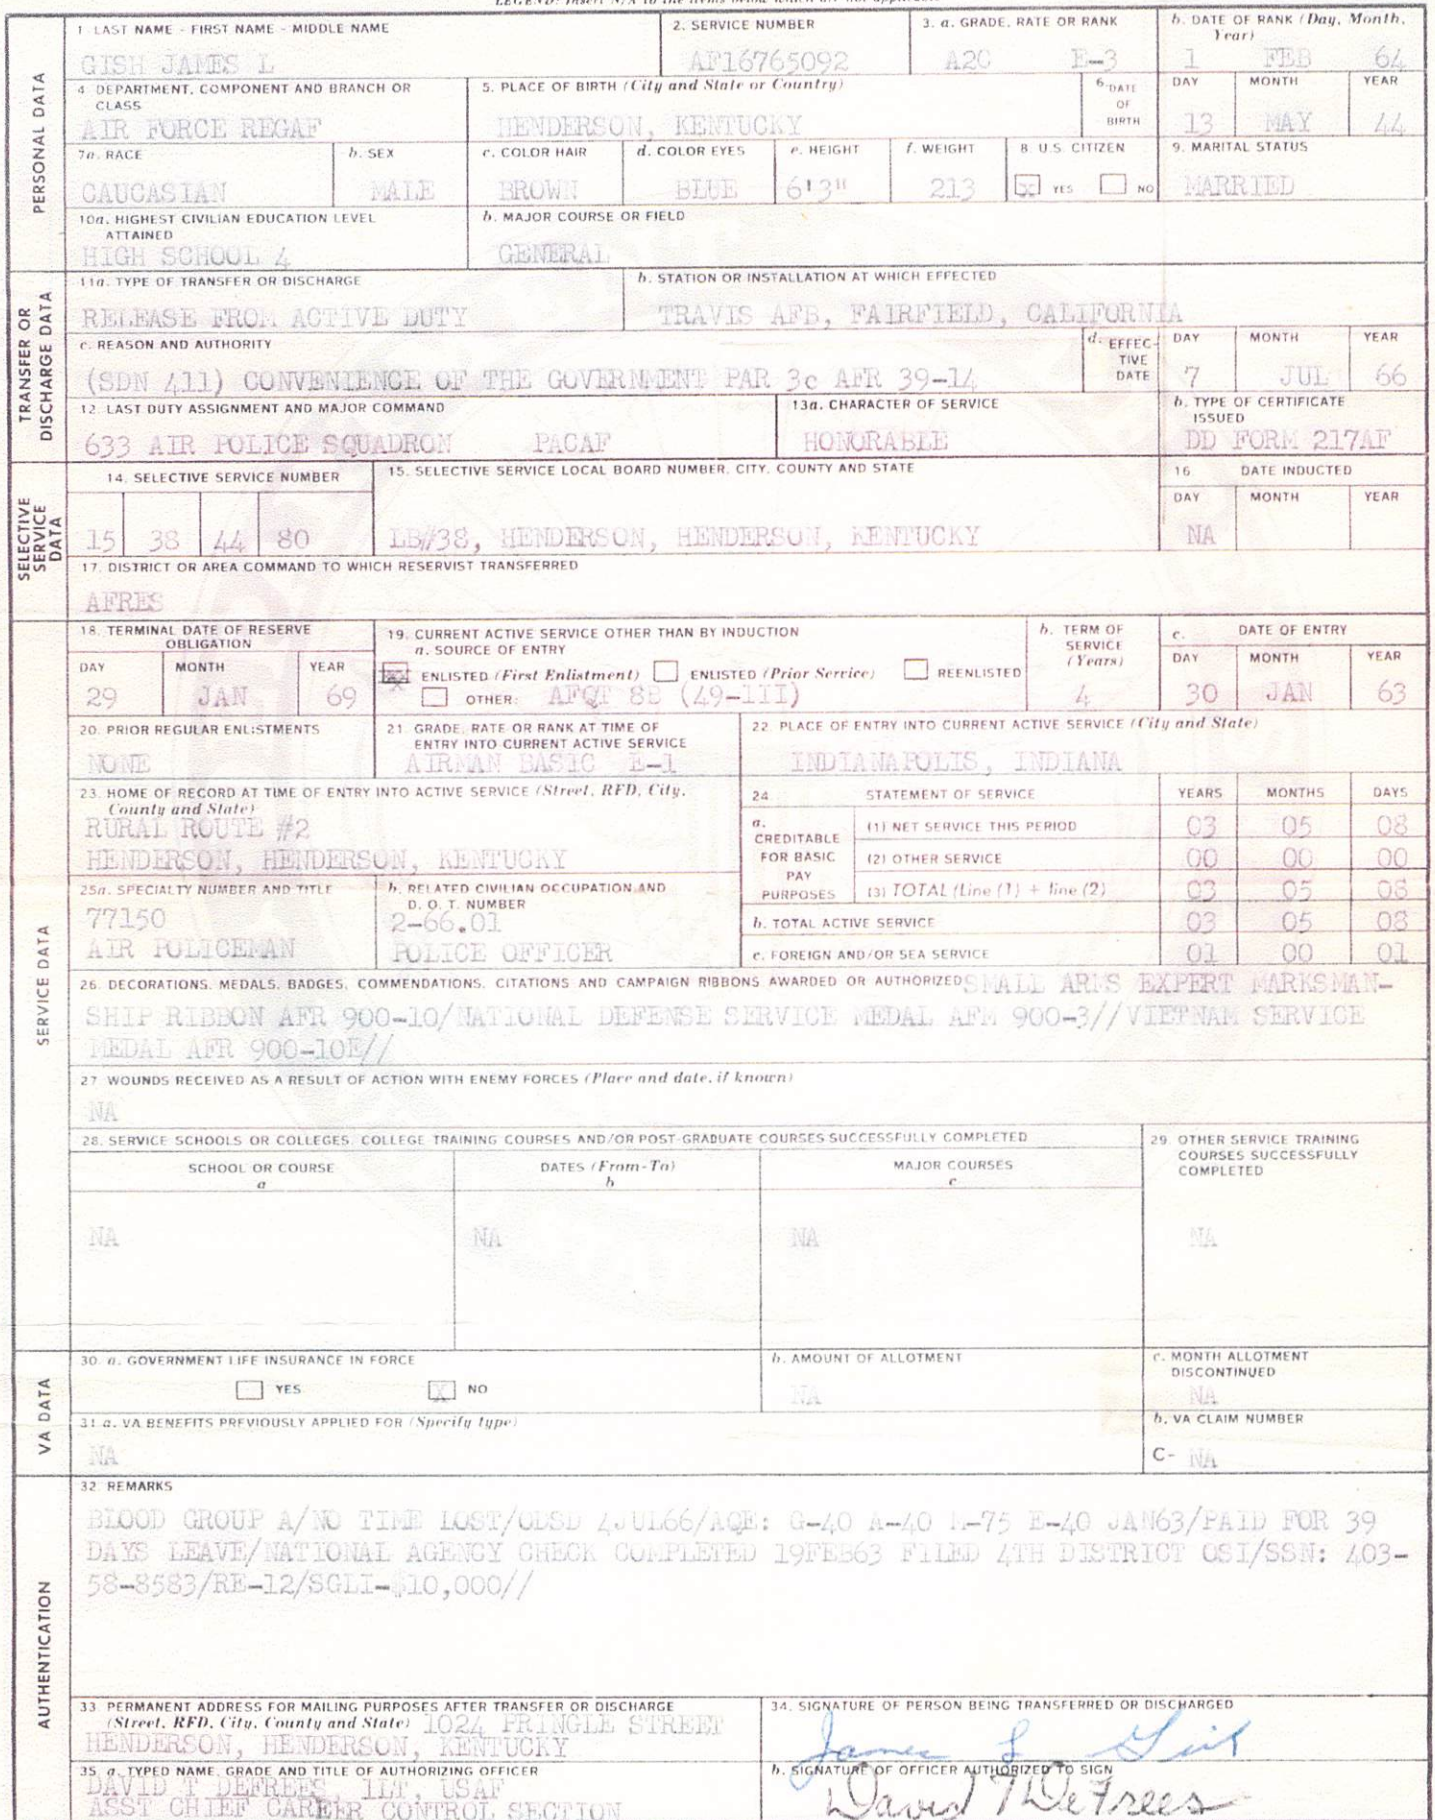 1. LAST NAME - FIRST NAME - MIDDLE NAME
GISH JAMES L
2. SERVICE NUMBER
AF16765092
3. a. GRADE, RATE OR RANK
A2C E-3
b. DATE OF RANK (Day, Month, Year)
1 FEB 64
PERSONAL DATA
4. DEPARTMENT, COMPONENT AND BRANCH OR CLASS
AIR FORCE REGAF
5. PLACE OF BIRTH (City and State or Country)
HENDERSON, KENTUCKY
6. DATE OF BIRTH
DAY MONTH YEAR
13 MAY 44
7a. RACE
CAUCASIAN
b. SEX
MALE
c. COLOR HAIR
BROWN
d. COLOR EYES
BLUE
e. HEIGHT
6'3"
f. WEIGHT
213
8. U.S. CITIZEN
X YES NO
9. MARITAL STATUS
MARRIED
10a. HIGHEST CIVILIAN EDUCATION LEVEL ATTAINED
HIGH SCHOOL 4
b. MAJOR COURSE OR FIELD
GENERAL
TRANSFER OR DISCHARGE DATA
11a. TYPE OF TRANSFER OR DISCHARGE
RELEASE FROM ACTIVE DUTY
b. STATION OR INSTALLATION AT WHICH EFFECTED
TRAVIS AFB, FAIRFIELD, CALIFORNIA
c. REASON AND AUTHORITY
(SDN 411) CONVENIENCE OF THE GOVERNMENT PAR 3c AFR 39-14
d. EFFECTIVE DATE
DAY MONTH YEAR
7 JUL 66
12. LAST DUTY ASSIGNMENT AND MAJOR COMMAND
633 AIR POLICE SQUADRON PACAF
13a. CHARACTER OF SERVICE
HONORABLE
b. TYPE OF CERTIFICATE ISSUED
DD FORM 217AF
SELECTIVE SERVICE DATA
14. SELECTIVE SERVICE NUMBER
15 38 44 80
15. SELECTIVE SERVICE LOCAL BOARD NUMBER, CITY, COUNTY AND STATE
LB#38, HENDERSON, HENDERSON, KENTUCKY
16. DATE INDUCTED
DAY MONTH YEAR
NA
17. DISTRICT OR AREA COMMAND TO WHICH RESERVIST TRANSFERRED
AFRES
SERVICE DATA
18. TERMINAL DATE OF RESERVE OBLIGATION
DAY MONTH YEAR
29 JAN 69
19. CURRENT ACTIVE SERVICE OTHER THAN BY INDUCTION
a. SOURCE OF ENTRY
X ENLISTED (First Enlistment) ENLISTED (Prior Service) REENLISTED
OTHER: AFQT 8B (49-III)
b. TERM OF SERVICE (Years)
4
c. DATE OF ENTRY
DAY MONTH YEAR
30 JAN 63
20. PRIOR REGULAR ENLISTMENTS
NONE
21. GRADE, RATE OR RANK AT TIME OF ENTRY INTO CURRENT ACTIVE SERVICE
AIRMAN BASIC E-1
22. PLACE OF ENTRY INTO CURRENT ACTIVE SERVICE (City and State)
INDIANAPOLIS, INDIANA
23. HOME OF RECORD AT TIME OF ENTRY INTO ACTIVE SERVICE (Street, RFD, City, County and State)
RURAL ROUTE #2
HENDERSON, HENDERSON, KENTUCKY
24. STATEMENT OF SERVICE YEARS MONTHS DAYS
a. CREDITABLE FOR BASIC PAY PURPOSES
(1) NET SERVICE THIS PERIOD 03 05 08
(2) OTHER SERVICE 00 00 00
(3) TOTAL (Line (1) + line (2) 03 05 08
b. TOTAL ACTIVE SERVICE 03 05 08
c. FOREIGN AND/OR SEA SERVICE 01 00 01
25a. SPECIALTY NUMBER AND TITLE
77150
AIR POLICEMAN
b. RELATED CIVILIAN OCCUPATION AND D. O. T. NUMBER
2-66.01
POLICE OFFICER
26. DECORATIONS, MEDALS, BADGES, COMMENDATIONS, CITATIONS AND CAMPAIGN RIBBONS AWARDED OR AUTHORIZED SMALL ARMS EXPERT MARKSMAN-
SHIP RIBBON AFR 900-10/NATIONAL DEFENSE SERVICE MEDAL AFM 900-3//VIETNAM SERVICE
MEDAL AFR 900-10E//
27. WOUNDS RECEIVED AS A RESULT OF ACTION WITH ENEMY FORCES (Place and date, if known)
NA
28. SERVICE SCHOOLS OR COLLEGES, COLLEGE TRAINING COURSES AND/OR POST-GRADUATE COURSES SUCCESSFULLY COMPLETED
SCHOOL OR COURSE a
DATES (From-To) b
MAJOR COURSES c
NA NA NA
29. OTHER SERVICE TRAINING COURSES SUCCESSFULLY COMPLETED
NA
VA DATA
30. a. GOVERNMENT LIFE INSURANCE IN FORCE
YES X NO
b. AMOUNT OF ALLOTMENT
NA
c. MONTH ALLOTMENT DISCONTINUED
NA
31 a. VA BENEFITS PREVIOUSLY APPLIED FOR (Specify type)
NA
b. VA CLAIM NUMBER
C- NA
AUTHENTICATION
32. REMARKS
BLOOD GROUP A/NO TIME LOST/ODSD 4JUL66/AQE: G-40 A-40 M-75 E-40 JAN63/PAID FOR 39
DAYS LEAVE/NATIONAL AGENCY CHECK COMPLETED 19FEB63 FILED 4TH DISTRICT OSI/SSN: 403-
58-8583/RE-12/SGLI-$10,000//
33. PERMANENT ADDRESS FOR MAILING PURPOSES AFTER TRANSFER OR DISCHARGE
(Street, RFD, City, County and State) 1024 PRINGLE STREET
HENDERSON, HENDERSON, KENTUCKY
34. SIGNATURE OF PERSON BEING TRANSFERRED OR DISCHARGED
James L Gish
35. a. TYPED NAME, GRADE AND TITLE OF AUTHORIZING OFFICER
DAVID T DEFREES, 1LT, USAF
ASST CHIEF CAREER CONTROL SECTION
b. SIGNATURE OF OFFICER AUTHORIZED TO SIGN
David T DeFrees